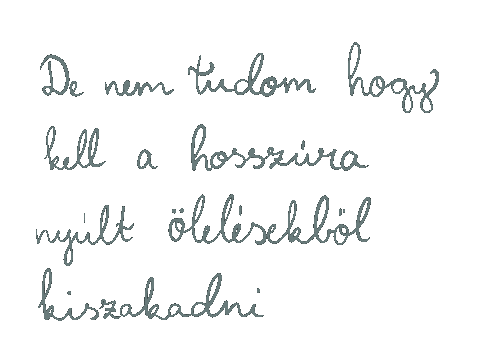 De nem tudom hogy
kell a hosszúra
nyúlt ölelésekből
kiszakadni